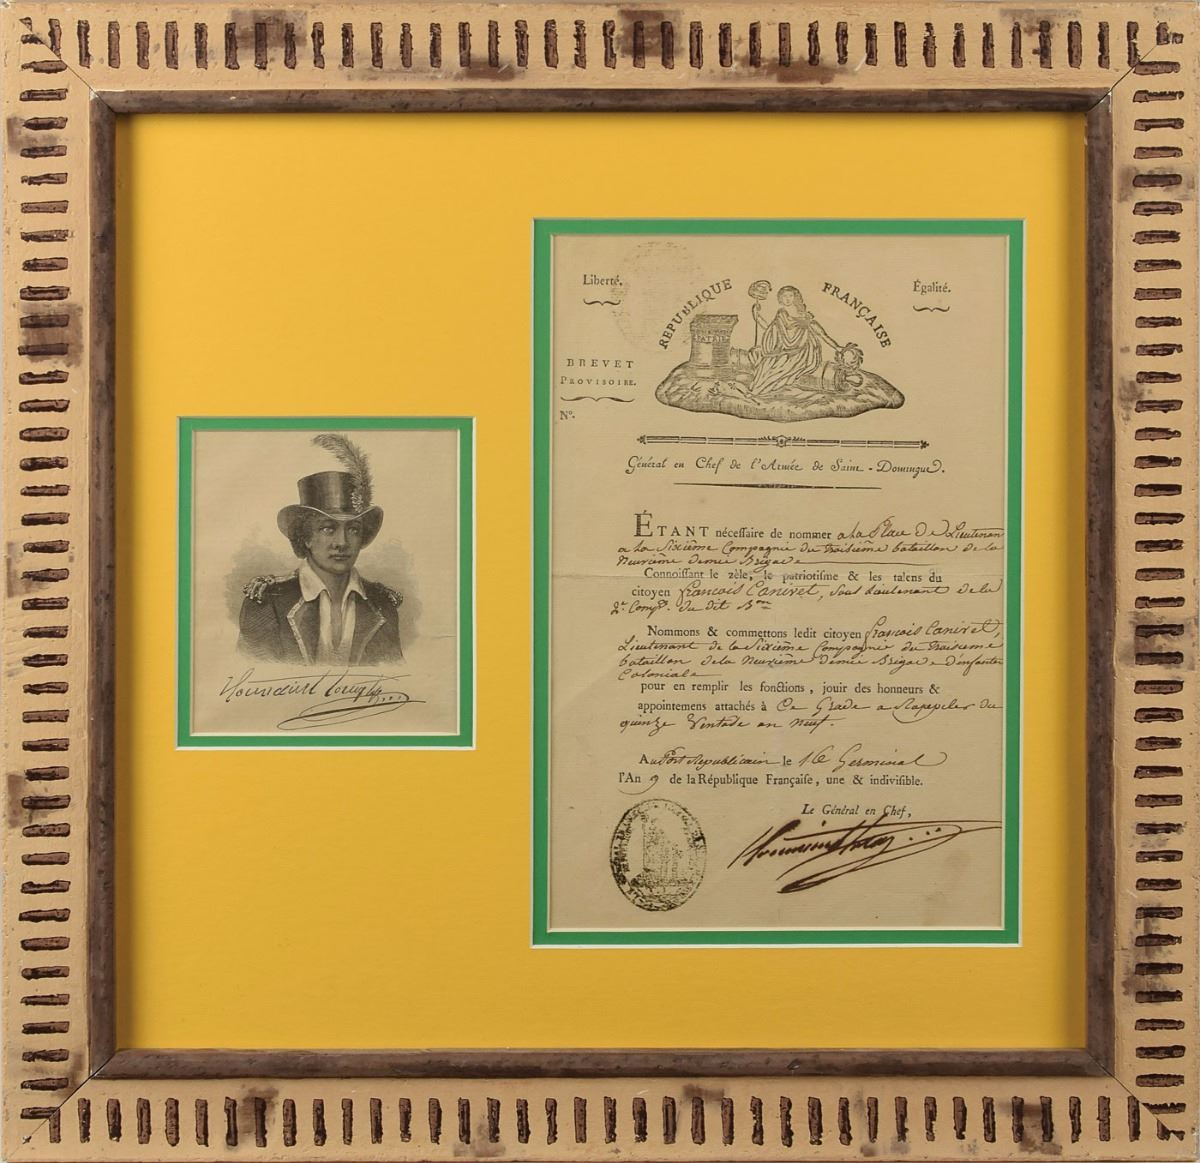 Liberté.
REPUBLIQUE FRANÇAISE
Égalité.
PATRIE
BREVET
PROVISOIRE.
N°.
Général en Chef de l'Armée de Saint-Domingue.
ÉTANT nécessaire de nommer a La Place de Lieutenan
a La Sixième Compagnie du troisième bataillon de la
Neuvième demie Brigade
Connoissant le zèle, le patriotisme & les talens du
citoyen françois Caniret, Sous Lieutenant de la
2e. Comp. du dit B.on
Nommons & commettons ledit citoyen françois Caniret,
Lieutenant de la Sixième Compagnie du troisieme
bataillon de la Neuvième demie Brigade d'infanter
Coloniale
pour en remplir les fonctions, jouir des honneurs &
appointemens attachés à Ce Grade a Rappeler du
quinze Ventade an Neuf.
Au Port Republicain le 16 Germinal
l'An 9 de la République Française, une & indivisible.
Le Général en Chef,
Toussaint Louverture
Toussaint Louverture